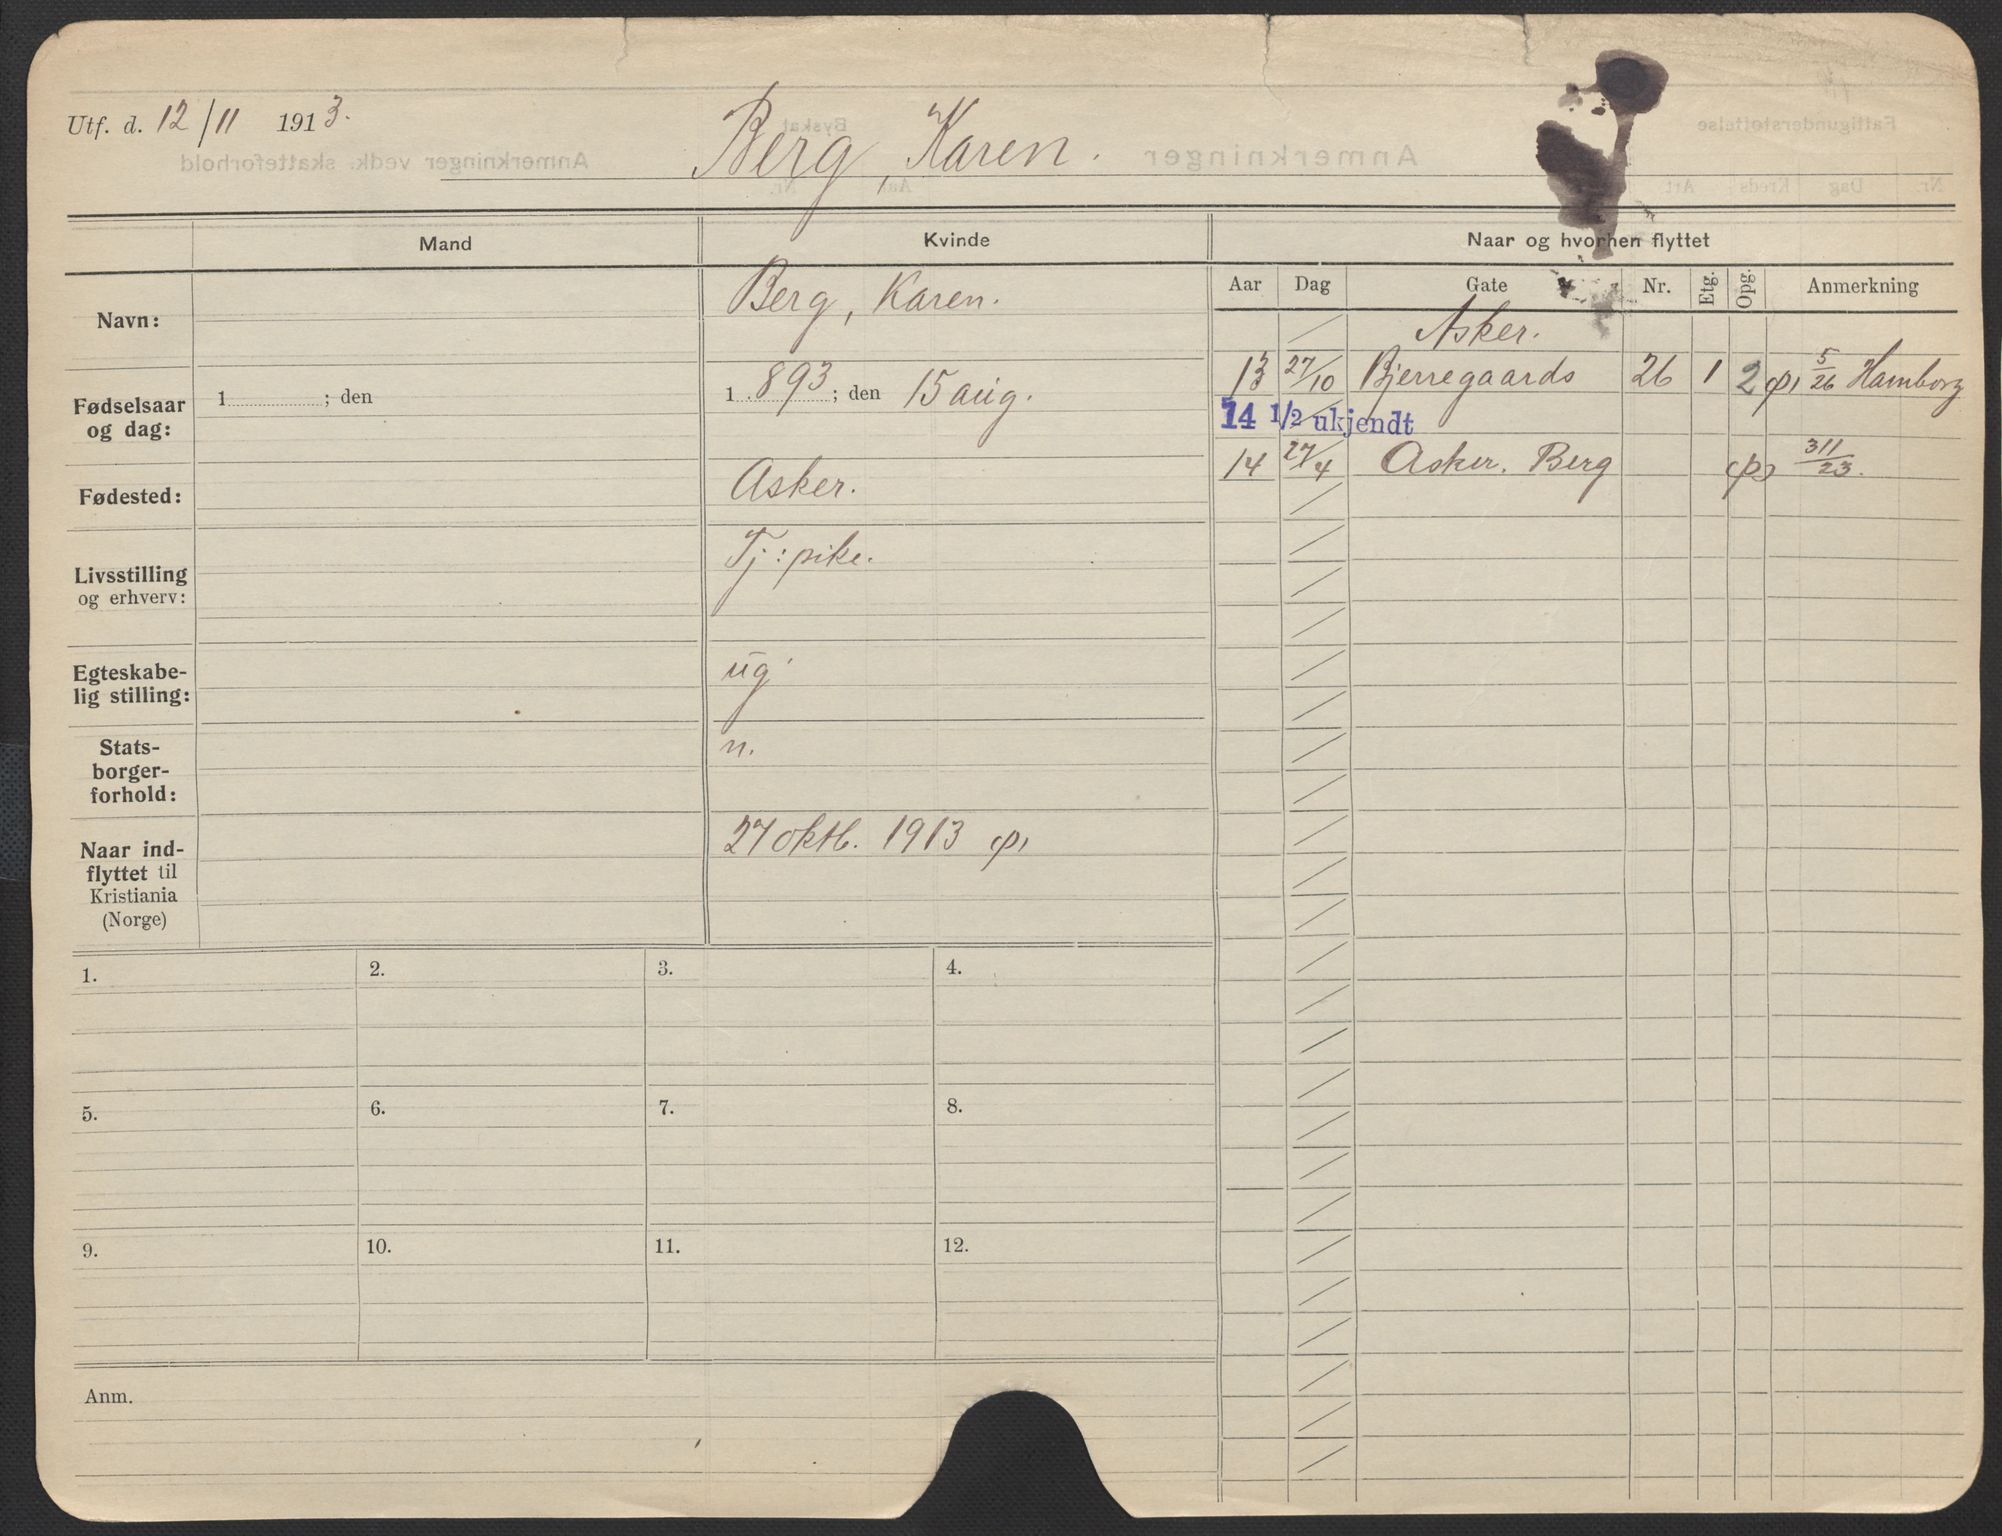 Utf. d. 12/11 1913.
Berg, Karen.
Mand Kvinde Naar og hvorhen flyttet
Aar Dag Gate Nr. Etg. Opg. Anmerkning
Navn: Berg, Karen.
Asker.
13 27/10 Bjerregaards 26 1 2 5/26 Hamborg
Fødselsaar og dag: 1 ; den 1 893 ; den 15 aug.
14 1/2 ukjendt
14 27/4 Asker. Berg 311/23.
Fødested: Asker.
Livsstilling
og erhverv:
Tj: pike.
Egteskabe-
lig stilling:
ug
Stats-
borger-
forhold:
n.
Naar ind-
flyttet til
Kristiania
(Norge)
27 oktb. 1913
1. 2. 3. 4.
5. 6. 7. 8.
9. 10. 11. 12.
Anm.